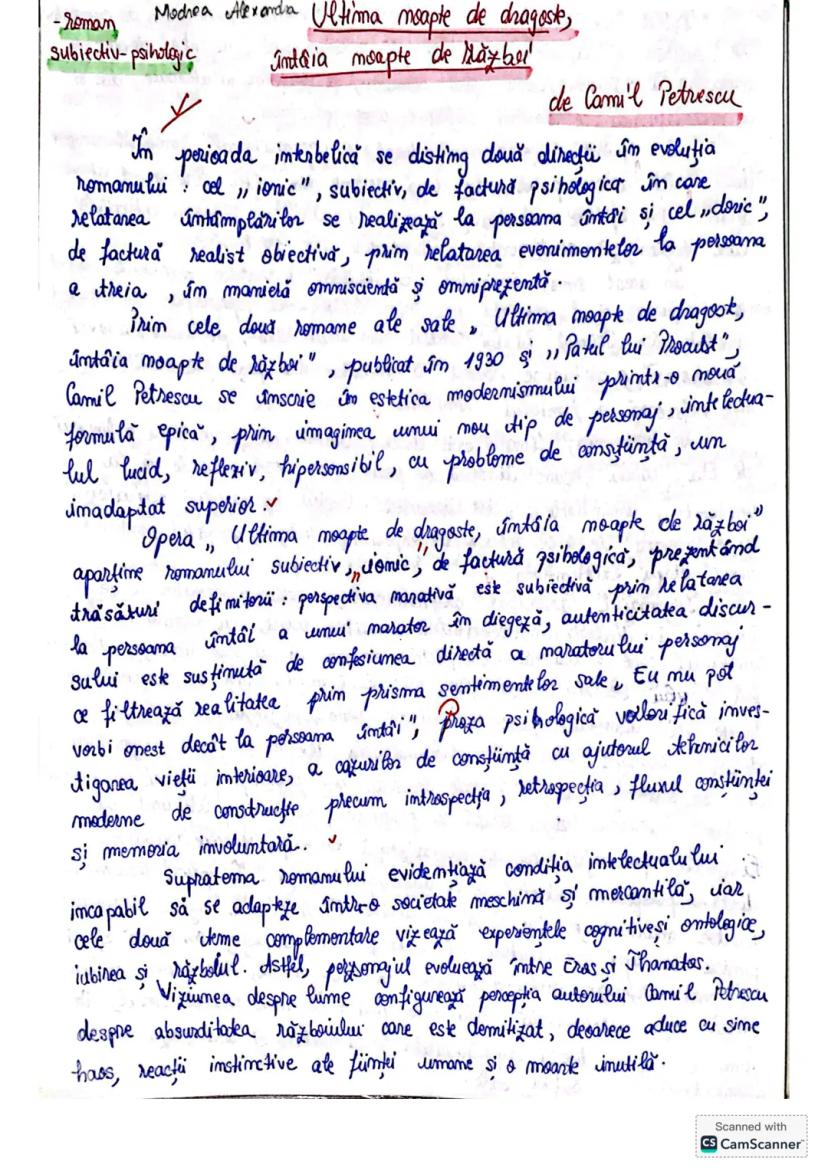 -roman Modrea Alexandra Ultima noapte de dragoste,
subiectiv-psihologic întâia noapte de Război
de Camil Petrescu
În perioada interbelică se disting două direcții în evoluția
romanului : cel „ionic", subiectiv, de factură psihologică în care
relatarea întâmplărilor se realizează la persoana întâi și cel „doric",
de factură realist obiectivă, prin relatarea evenimentelor la persoana
a treia, în manieră omniscientă și omniprezentă.
Prin cele două romane ale sale „Ultima noapte de dragoste,
întâia noapte de război", publicat în 1930 și „Patul lui Procust",
Camil Petrescu se înscrie în estetica modernismului printr-o nouă
formulă epică, prin imaginea unui nou tip de personaj, intelectua-
lul lucid, reflexiv, hipersensibil, cu probleme de conștiință, un
inadaptat superior.
Opera „Ultima noapte de dragoste, întâia noapte de război"
aparține romanului subiectiv, „ionic", de factură psihologică, prezentând
trăsături definitorii : perspectiva narativă este subiectivă prin relatarea
la persoana întâi a unui narator în diegeză, autenticitatea discur-
sului este susținută de confesiunea directă a naratorului personaj
ce filtrează realitatea prin prisma sentimentelor sale „Eu nu pot
vorbi onest decât la persoana întâi", proza psihologică valorifică inves-
tigarea vieții interioare, a cazurilor de conștiință cu ajutorul tehnicilor
moderne de construcție precum introspecția, retrospecția, fluxul conștiinței
și memoria involuntară.
Supratema romanului evidențiază condiția intelectualului
incapabil să se adapteze într-o societate meschină și mercantilă, iar
cele două teme complementare vizează experiențele cognitive și ontologice,
iubirea și războiul. Astfel, personajul evoluează între Eros și Thanatos.
Viziunea despre lume configurează percepția autorului Camil Petrescu
despre absurditatea războiului care este demitizat, deoarece aduce cu sine
haos, reacții instinctive ale ființei umane și o moarte inutilă.
Scanned with
CS CamScanner